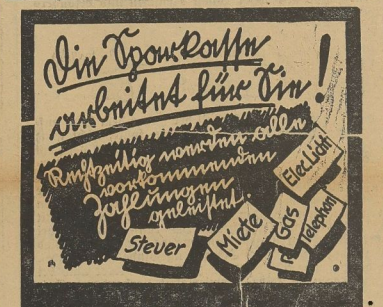 Die Sparkasse
arbeitet für Sie!
Rechtzeitig werden alle
vorkommenden
Zahlungen
geleistet.
Elec.Licht
Steuer
Miete
Gas
Telephon